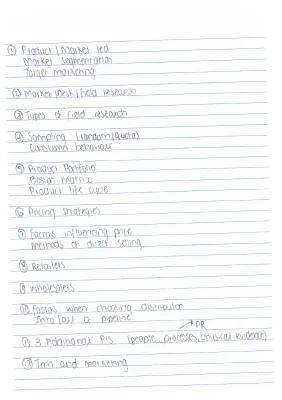 ① Product / Market led
Market Segmentation
Target marketing
② Market / Desk / field research
③ Types of field research
④ Sampling (random / quota)
Consumer behaviour
⑤ Product Portfolio
Boston matrix
Product life cycle
⑥ Pricing strategies
⑦ factors influencing price
methods of direct selling
⑧ Retailers
⑨ Wholesalers
⑩ factors when choosing distributor
Into / out a pipeline
→ PR
⑪ 3 Additional P's (people, processes, physical evidence)
⑫ Tech and marketing